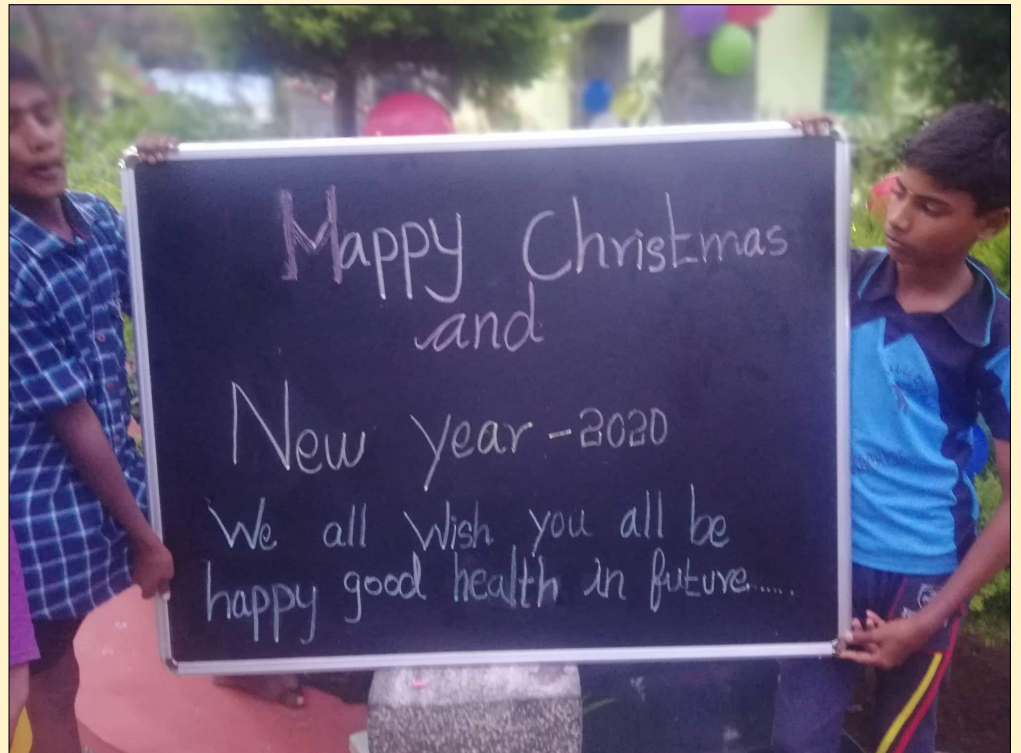 Mappy Christmas
and
New year - 2020
We all wish you all be
happy good health in future......